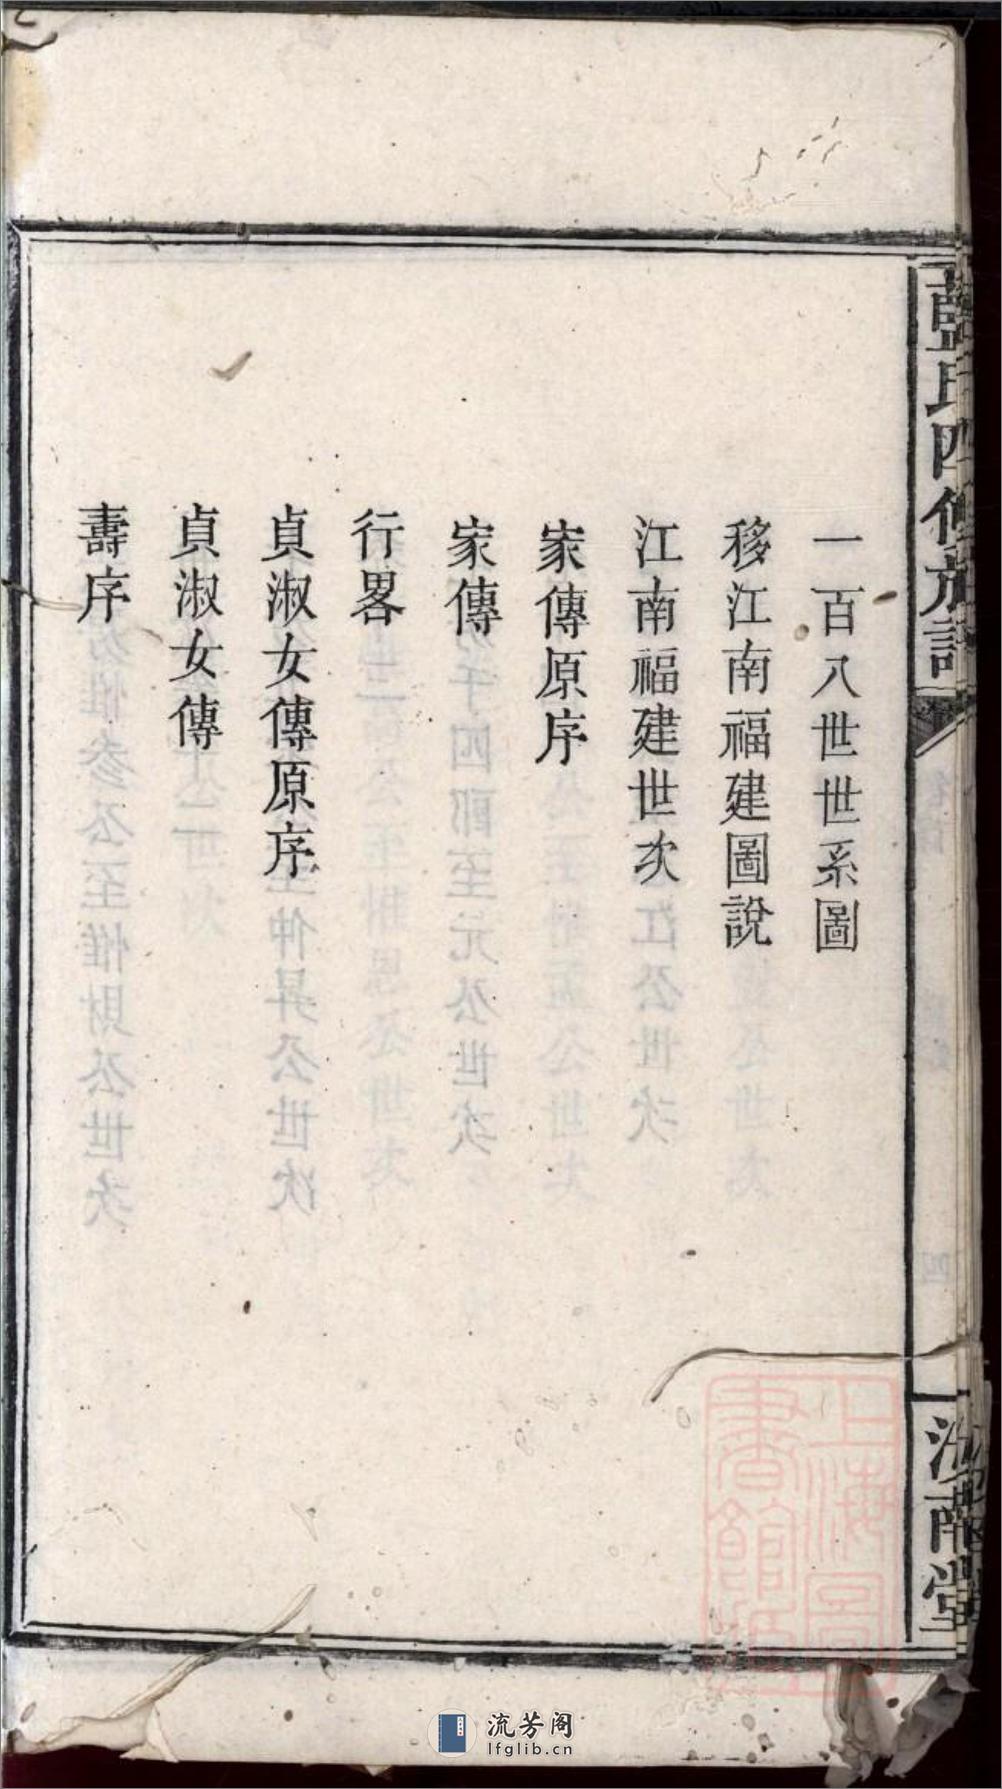 藍氏四修族譜
一百八世世系圖
移江南福建圖說
江南福建世次
家傳原序
家傳
行畧
貞淑女傳原序
貞淑女傳
壽序
流芳阁
lfglib.cn